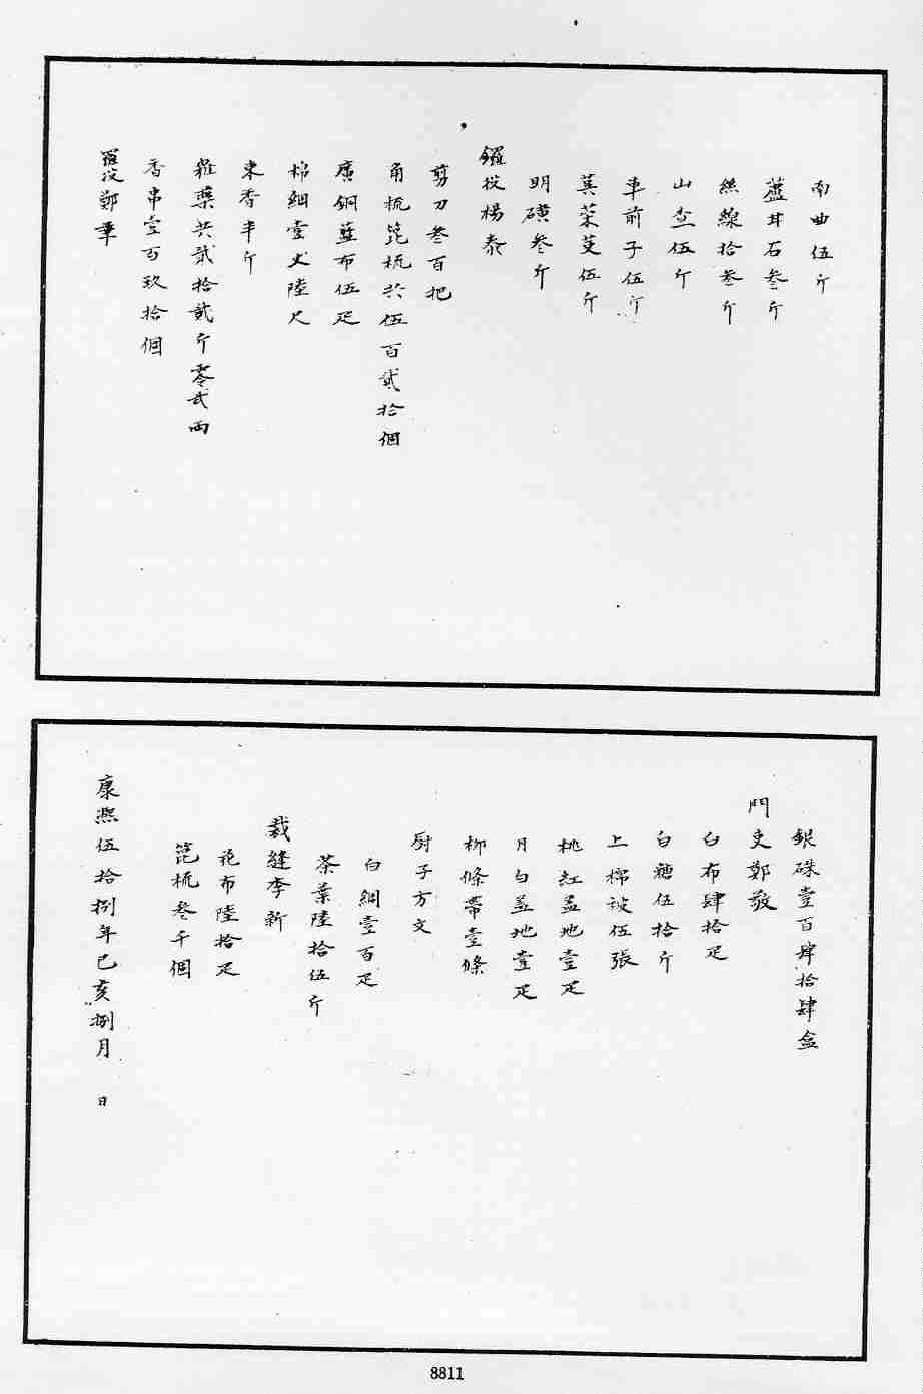 南曲伍斤
蘆甘石叁斤
絲線拾叁斤
山查伍斤
車前子伍斤
萆茇伍斤
明磺叁斤
鑼役楊泰
剪刀叁百把
角梳篦梳共伍百貳拾個
廣銅藍布伍疋
棉紬壹丈陸尺
束香半斤
雜藥共貳拾貳斤零貳兩
香串壹百玖拾個
鑼役鄭華
銀硃壹百肆拾肆盒
門吏鄭敬
白布肆拾疋
白糖伍拾斤
上棉被伍張
桃紅盖地壹疋
月白盖地壹疋
柳條帶壹條
廚子方文
白綢壹百疋
茶葉陸拾伍斤
裁縫李新
花布陸拾疋
篦梳叁千個
康熙伍拾捌年己亥捌月 日
8811